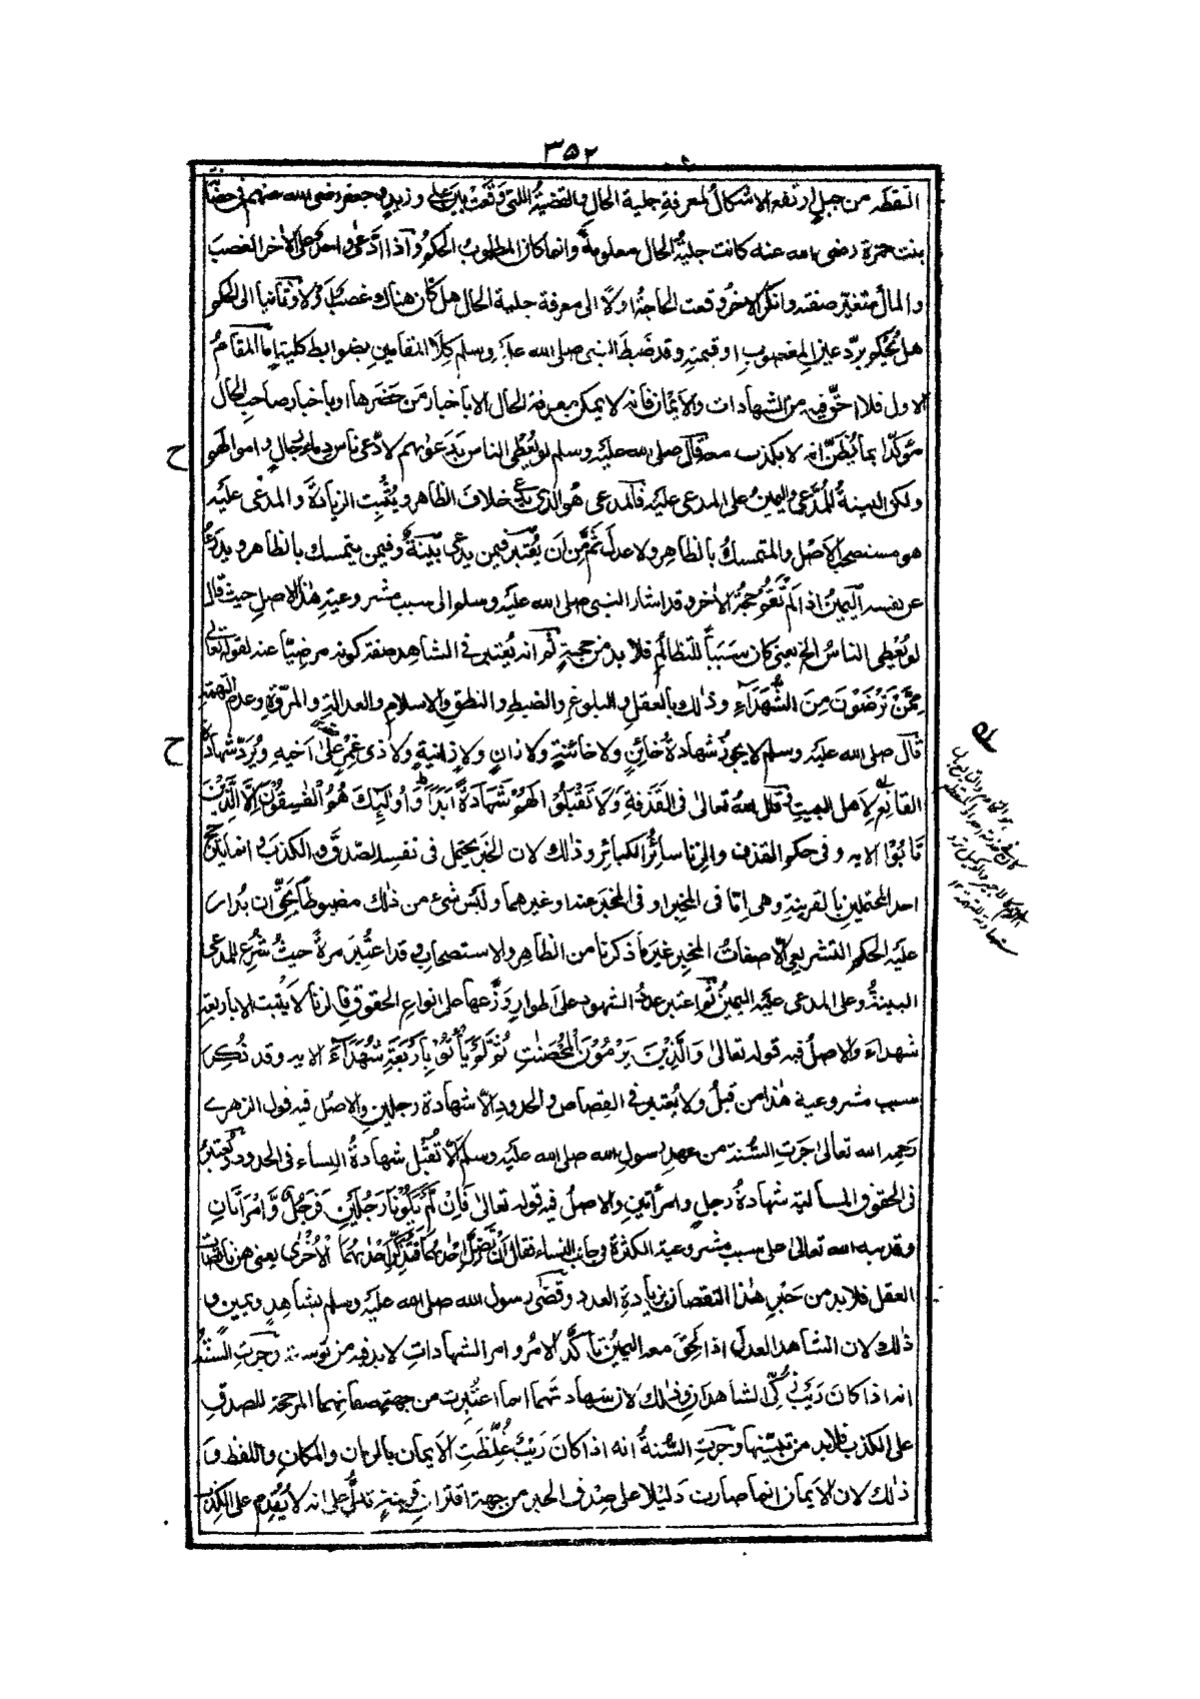 ٣٥٢
النقطه من جبل ارتفع الاشكال لمعرفة جلية الحال والقضية اللتى وقعت بين على وزيد وجعفر رضى الله عنهم فى حضانة
بنت حمزة رضى الله عنه كانت جلية الحال معلومة وانما كان المطلوب الحكم واذا ادعى واحد على الاخر الغصب
والمال متغير صفته وانكر الاخر وقعت الحاجة اولا الى معرفة جلية الحال هل كان هناك غصب او لا وثانيا الى الحكم
هل يحكم برد عين المغصوب او قيمته وقد ضبط النبى صلى الله عليه وسلم كلا المقامين بضوابط كلية اما المقام
الاول فلا احق فيه من الشهادات والايمان فانه لا يمكن معرفة الحال الا باخبار من حضرها او باخبار صاحب الحال
مؤكدا بما يظن انه لا يكذب معه قال صلى الله عليه وسلم لو يعطى الناس بدعوٰىهم لادعى ناس دماء رجال واموالهم
ح
ولكن البينة للمدعى واليمين على المدعى عليه فالمدعى هو الذى يدعى خلاف الظاهر ويثبت الزيادة والمدعى عليه
هو مستصحب الاصل والمتمسك بالظاهر ولا عدل ثم من ان يعتبر فيمن يدعى بينة وفيمن يتمسك بالظاهر ويدرء
عن نفسه اليمين اذا لم تقم حجة الاخر وقد اشار النبى صلى الله عليه وسلم الى سبب مشروعية هٰذا الاصل حيث قال
لو يعطى الناس الخ يعنى كان سببا للتظالم فلا بد من حجة ثم انه يعتبر فى الشاهد صفة كونه مرضيا عنه لقوله تعالى
مِمَّنْ تَرْضَوْنَ مِنَ الشُّهَدَآءِ وذٰلك بالعقل والبلوغ والضبط والنطق والاسلام والعدالة والمروة وعدم التهمة
قال صلى الله عليه وسلم لا يجوز شهادة خائن ولا خائنة ولا زان ولا زانية ولا ذى غمر على اخيه وترد شهادة
ح
القانع لاهل البيت وقال الله تعالى فى القذفة وَلَا تَقْبَلُوْا لَهُمْ شَهَادَةً اَبَدًا وَاُولٰٓئِكَ هُمُ الْفٰسِقُوْنَ اِلَّا الَّذِيْنَ
تَابُوْا الايه وفى حكم القذف والزنا سائر الكبائر وذٰلك لان الخبر يحتمل فى نفسه الصدق والكذب وانما يترجح
احد المحتملين بالقرينة وهى اما فى المخبر او فى المخبر عنه او غيرهما وليس شئ من ذٰلك مضبوطا يحق ان يدار
عليه الحكم التشريعى الا صفات المخبر غير ما ذكرنا من الظاهر والاستصحاب وقد اعتبر مرة حيث شرع للمدعى
البينة وعلى المدعى عليه اليمين ثم اعتبر عدد الشهود على اطوار وزعها على انواع الحقوق فالزنا لا يثبت الا باربعة
شهداء والاصل فيه قوله تعالىٰ وَالَّذِيْنَ يَرْمُوْنَ الْمُحْصَنٰتِ ثُمَّ لَمْ يَأْتُوْا بِأَرْبَعَةِ شُهَدَآءَ الايه وقد ذكرنا
سبب مشروعية هٰذا من قبل ولا يعتبر فى القصاص والحدود الا شهادة رجلين والاصل فيه قول الزهرى
رحمه الله تعالىٰ جرت السنة من عهد رسول الله صلى الله عليه وسلم الا تقبل شهادة النساء فى الحدود ويعتبر
فى الحقوق المسالية شهادة رجل وامرأتين والاصل فيه قوله تعالىٰ فَاِنْ لَّمْ يَكُوْنَا رَجُلَيْنِ فَرَجُلٌ وَّامْرَاَتَانِ
وقد نبه الله تعالى على سبب مشروعية الكثرة فى جانب النساء فقال اَنْ تَضِلَّ اِحْدٰىهُمَا فَتُذَكِّرَ اِحْدٰىهُمَا الْاُخْرٰى يعنى هن ناقصات
العقل فلا بد من جبر هٰذا النقصان بزيادة العدد وقضى رسول الله صلى الله عليه وسلم بشاهد ويمين و
ذٰلك لان الشاهد العدل اذا لحق معه اليمين تأكد الامر وامر الشهادات لا بد فيه من توسعة وجرت السنة
انه اذا كان ريب زكى الشاهدان وذٰلك لان شهادتهما انما اعتبرت من جهة صفاتهما المرجحة للصدق
على الكذب فلا بد من تبيينها وجرت السنة انه اذا كان ريب غلظت الايمان بالزمان والمكان واللفظ و
ذٰلك لان الايمان انما صارت دليلا على صدق الخبر من جهة اقتران قرينة تدل على انه لا يقدم على الكذب